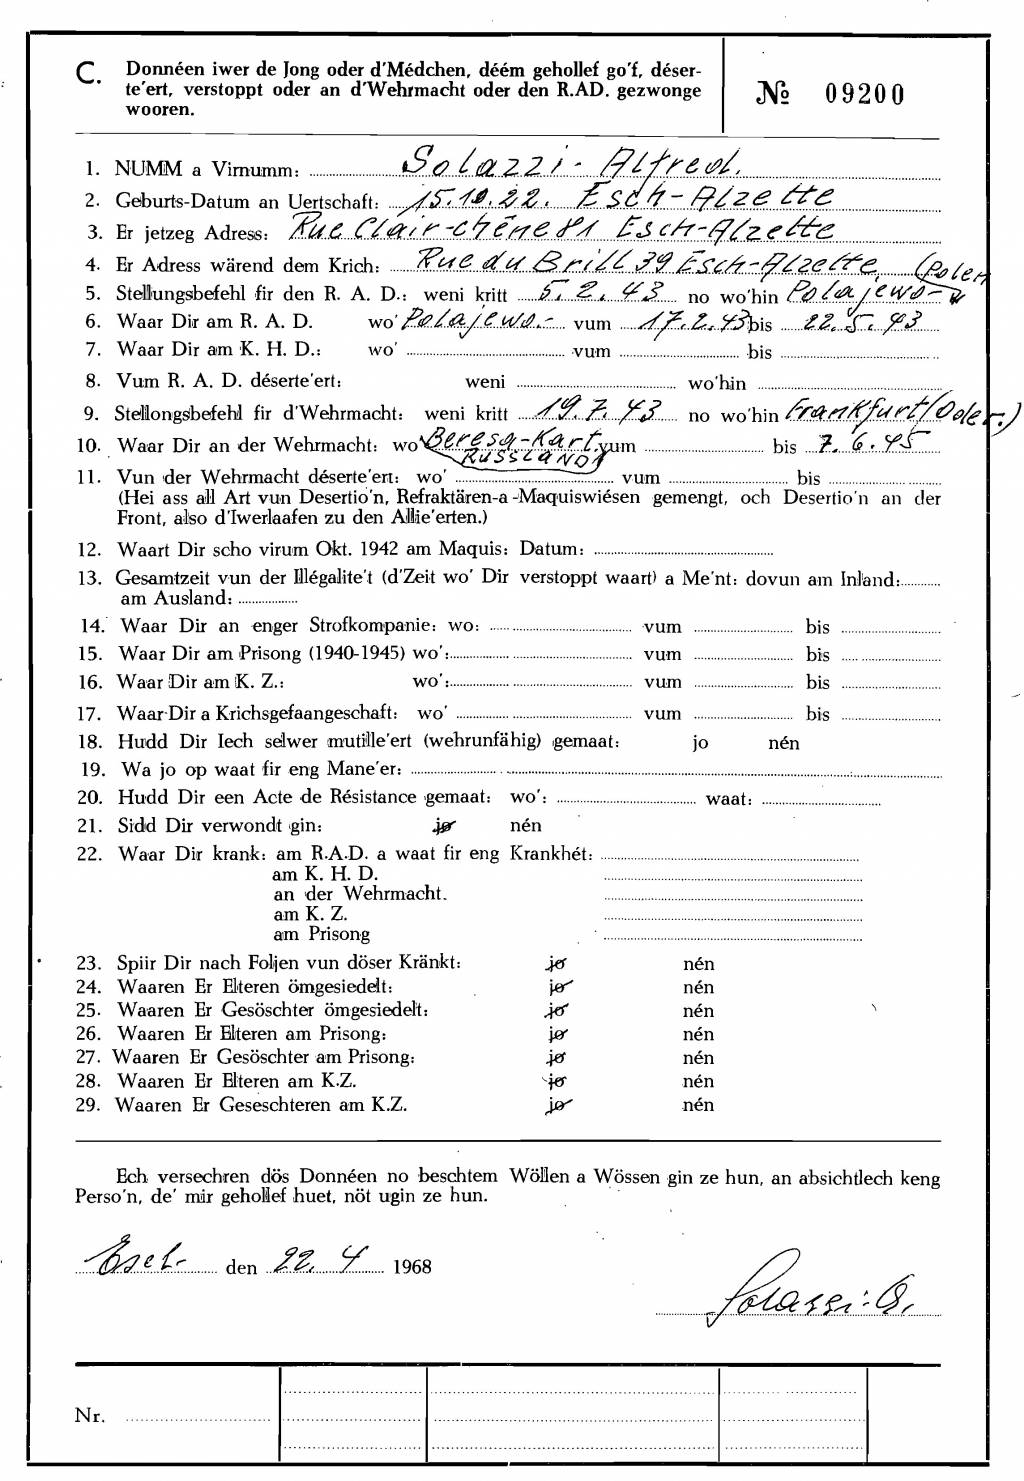 C. Donnéen iwer de Jong oder d'Médchen, déém gehollef go'f, déser-
te'ert, verstoppt oder an d'Wehrmacht oder den R.AD. gezwonge
wooren.
№ 09200
1. NUMM a Virnumm: Solazzi- Alfred.
2. Geburts-Datum an Uertschaft: 15.10.22. Esch-Alzette
3. Er jetzeg Adress: Rue Clair-chêne 81 Esch-Alzette
4. Er Adress wärend dem Krich: Rue du Brill 39 Esch-Alzette (Polen
5. Stellungsbefehl fir den R. A. D.: weni kritt 5.2.43 no wo'hin Polajewo-
6. Waar Dir am R. A. D. wo' Polajewo.- vum 17.2.43 bis 22.5.43
7. Waar Dir am K. H. D.: wo' vum bis
8. Vum R. A. D. déserte'ert: weni wo'hin
9. Stellongsbefehl fir d'Wehrmacht: weni kritt 19.7.43 no wo'hin Frankfurt/Oder.)
10. Waar Dir an der Wehrmacht: wo' Beresa-Kart. vum bis 7.6.45
RUSSLAND
11. Vun der Wehrmacht déserte'ert: wo' vum bis
(Hei ass all Art vun Desertio'n, Refraktären-a-Maquiswiésen gemengt, och Desertio'n an der
Front, also d'Iwerlaafen zu den Allie'erten.)
12. Waart Dir scho virum Okt. 1942 am Maquis: Datum:
13. Gesamtzeit vun der Illégalite't (d'Zeit wo' Dir verstoppt waart) a Me'nt: dovun am Inland:
am Ausland:
14. Waar Dir an enger Strofkompanie: wo: vum bis
15. Waar Dir am Prisong (1940-1945) wo': vum bis
16. Waar Dir am K. Z.: wo': vum bis
17. Waar Dir a Krichsgefaangeschaft: wo' vum bis
18. Hudd Dir Iech selwer mutille'ert (wehrunfähig) gemaat: jo nén
19. Wa jo op waat fir eng Mane'er:
20. Hudd Dir een Acte de Résistance gemaat: wo': waat:
21. Sidd Dir verwondt gin: jo nén
22. Waar Dir krank: am R.A.D. a waat fir eng Krankhét:
am K. H. D.
an der Wehrmacht.
am K. Z.
am Prisong
23. Spiir Dir nach Foljen vun döser Kränkt: jo nén
24. Waaren Er Elteren ömgesiedelt: jo nén
25. Waaren Er Gesöschter ömgesiedelt: jo nén
26. Waaren Er Elteren am Prisong: jo nén
27. Waaren Er Gesöschter am Prisong: jo nén
28. Waaren Er Elteren am K.Z. jo nén
29. Waaren Er Geseschteren am K.Z. jo nén
Ech versechren dös Donnéen no beschtem Wöllen a Wössen gin ze hun, an absichtlech keng
Perso'n, de' mir gehollef huet, nöt ugin ze hun.
Esch- den 22. 4 1968
Solazzi-A.
Nr.